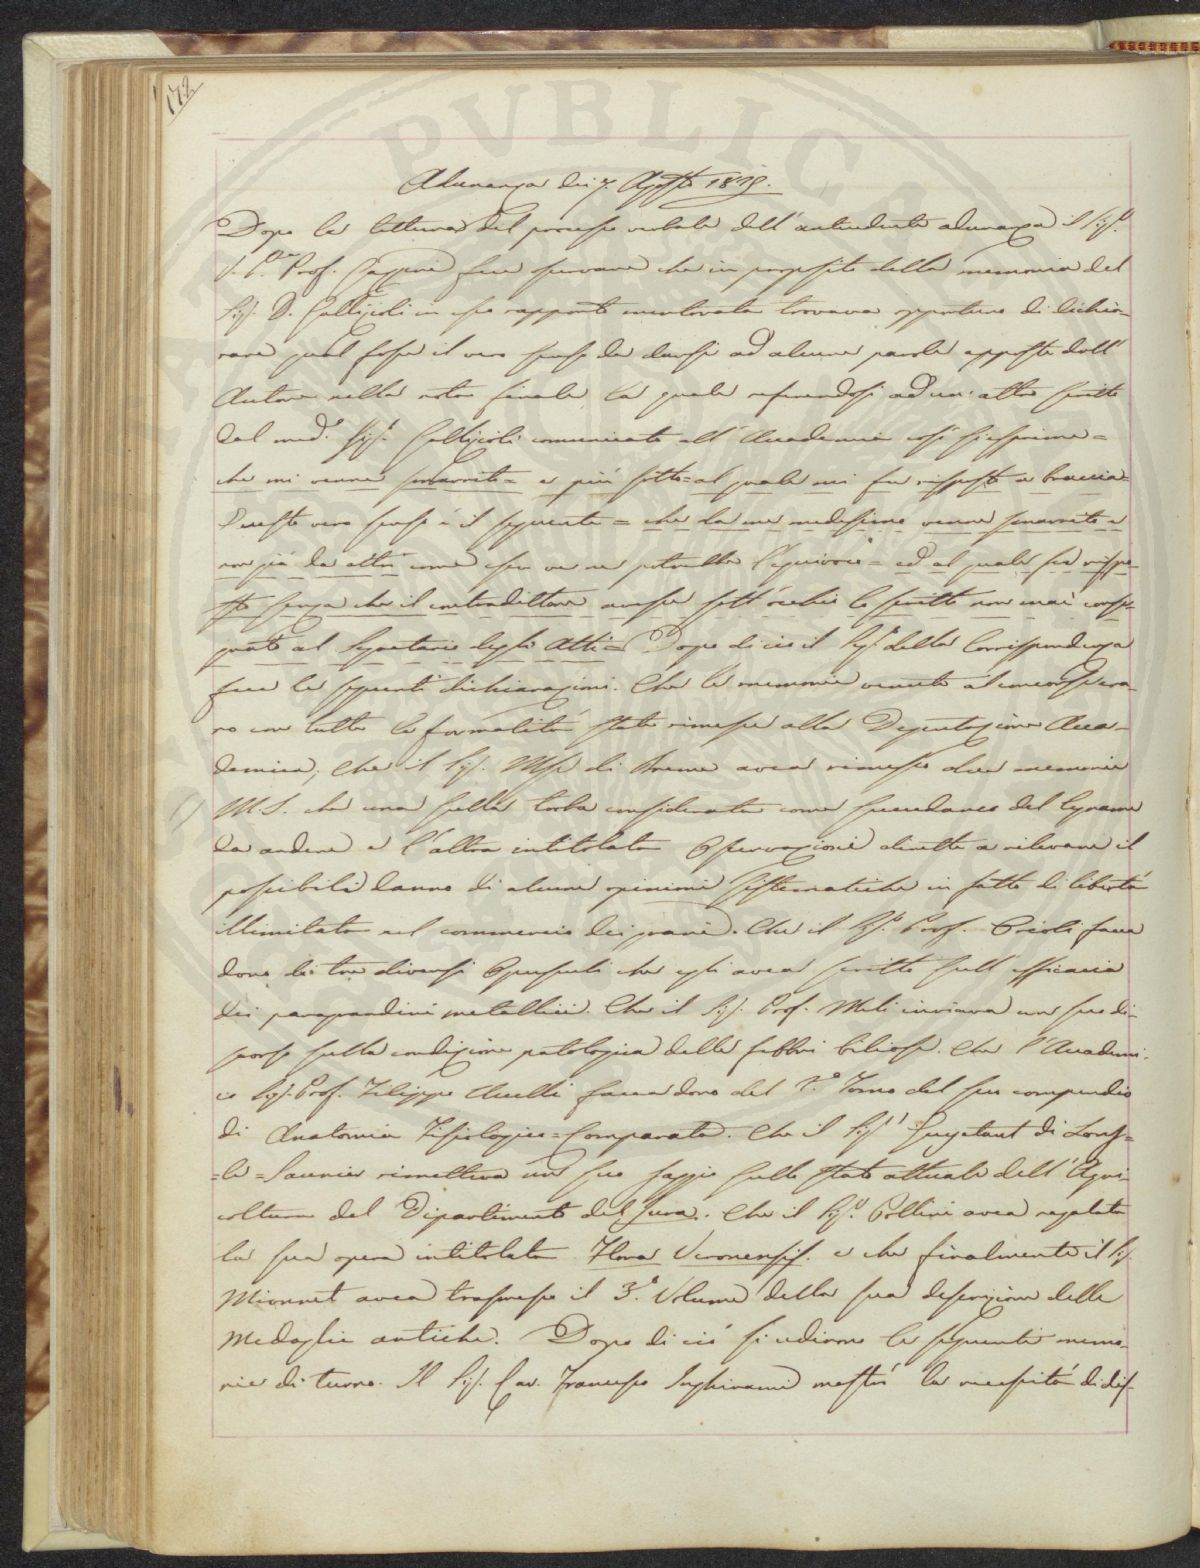 172
PVBLICAE
Adunanza dei 7. Agosto 1825.
Dopo la lettura del processo verbale dell'antecedente adunanza il Sig.r
Prof. fece osservare che in proposito della memoria del
Sig. D. Gallizioli in esso rapporto mentovata trovava opportuno di dichia-
rare qual fosse il vero senso da darsi ad alcune parole apposte dall'
Autore nella nota finale, la quale referendosi ad un altro scritto
dal med.o Sig.r Gallizioli comunicato all'Accademia così si esprime =
che mi venne smarrito = e più sotto = al quale mi fu risposto a braccia =
Questo vero senso è il seguente = che da me medesimo venne smarrito e
non già da altri come esser ve ne potrebbe l'equivoco = ed al quale fu rispo-
sto senza che il contradittore avesse sott'occhio lo scritto non mai conse-
gnato al Segretario degli Atti = Dopo di ciò il Seg.o della Corrispondenza
fece le seguenti dichiarazioni. Che le memorie venute al concorso era-
no con tutte le formalità state rimesse alla Deputazione Acca-
demica; Che il Sig. di avea rimesso due memorie
M.S. che una sulla torba considerata come succedaneo del legname
da ardere e l'altra intitolata Osservazioni dirette a rilevare il
possibile danno di alcune opinioni sistematiche in fatto di libertà
illimitata nel commercio dei grani. Che il Sig. Prof. facea
dono di tre diversi Opuscoli che egli avea scritto sull'efficacia
dei paragrandini metallici. Che il Sig. Prof. Meli inviava un suo di-
scorso sulla condizione patologica delle febbri biliose. Che l'Accademi-
co Sig. Prof. Filippo Uccelli facea dono del Tomo del suo compendio
di Anatomia Fisiologico = Comparata. Che il Sig.r Guyetant di Lons-
=le=Saunier rimetteva un suo saggio sullo stato attuale dell'Agri-
coltura del Dipartimento del Jura. Che il Sig. Pollini avea regalato
la sua opera intitolata Flora Veronensis. e che finalmente il Sig.
Mionnet avea trasmesso il 3.o Volume della sua descrizione delle
Medaglie antiche. Dopo di ciò si udirono le seguenti memo-
rie di turno. Il Sig. Cav. Francesco Inghirami mostrò la necessità di dis-